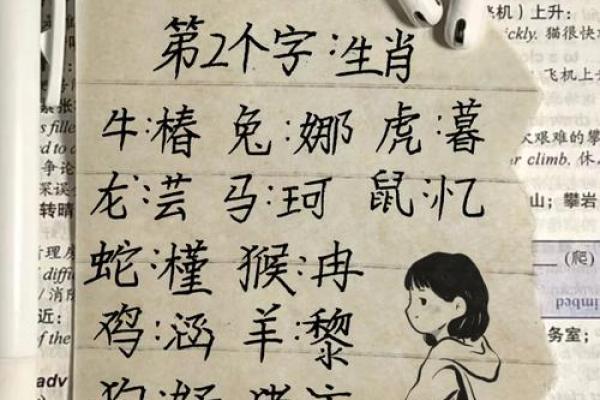 机）上升：
ickly. 猫很快
飞机上升
第2个字：生肖
牛：椿 兔：娜 虎：暮
龙：芸 马：珂 鼠：忆
蛇：槿 猴：冉
鸡：涵 羊：黎
张
s fille
d to
争论
深误
转晴
理房
diffi
消防
近：
of the
adv
艰难的攀
r climb. 休
山；攀岩
（爬）
imbed
务室；